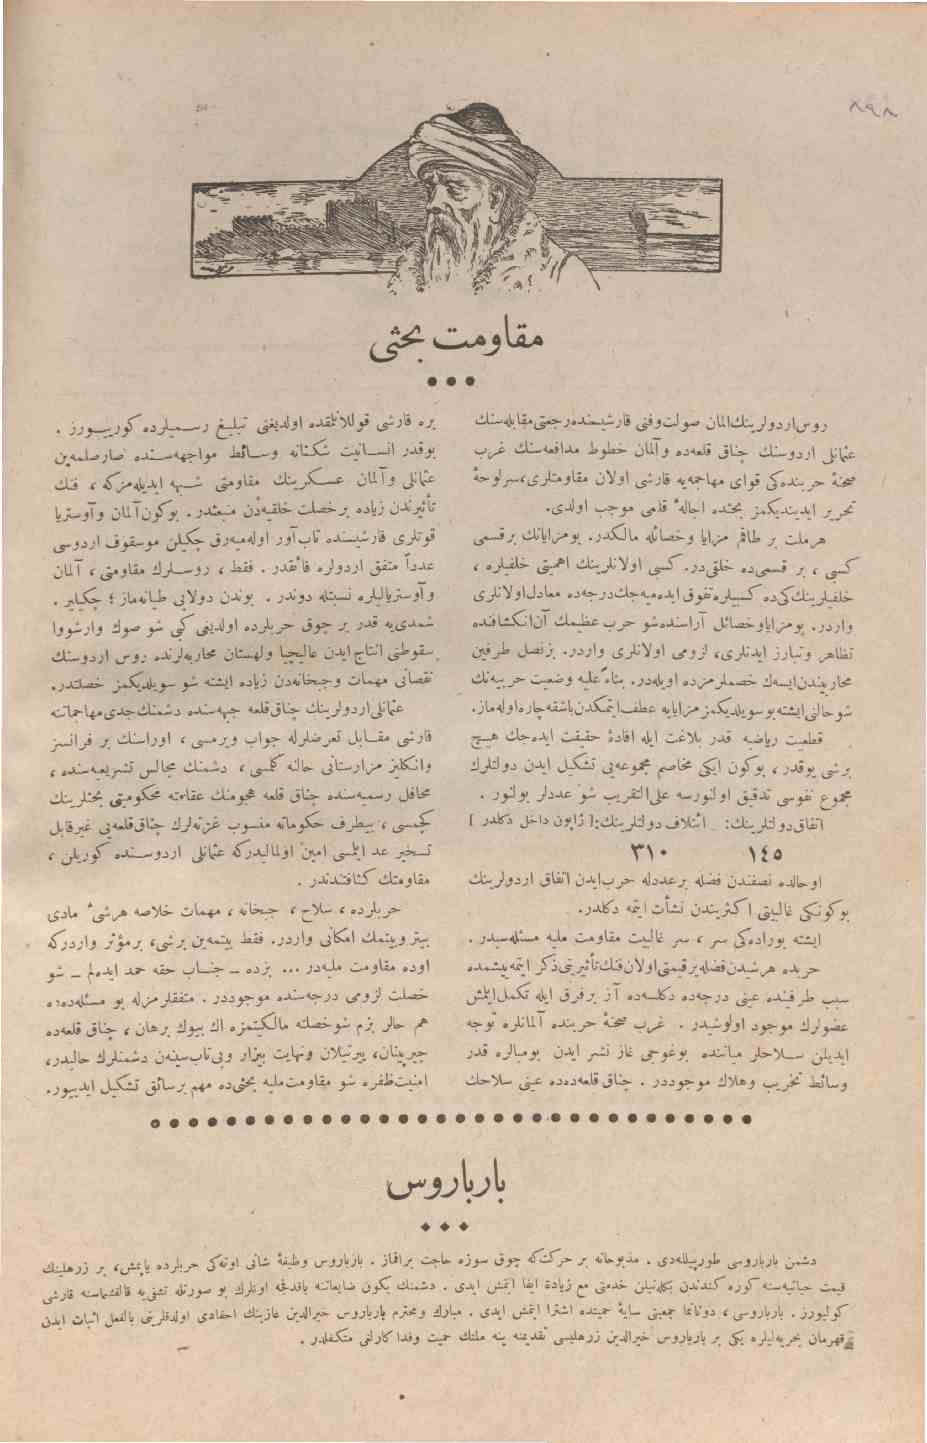 ٨٩٨
مقاومت بحثی
روس اردولرينك آلمان صولت وفنى قارشيسنده رجعتى مقابله سنك
عثمانلى اردوسنك چناق قلعه ده وآلمان خطوط مدافعه سنك غرب
صحنهٔ حربنده كى قواى مهاجمه يه قارشى اولان مقاومتلرى، سرلوحهٔ
تحرير ايديديكمز بحثده اجالهٔ قلمى موجب اولدى.
هر ملت بر طاقم مزايا وخصائله مالكدر. بو مزايانك بر قسمى
كسبى ، بر قسمى ده خلقى در. كسبى اولانلرينك اهميتى خلقيلره ،
خلقيلرينك كى ده كسبيلره تفوق ايده ميه جك درجه ده معادل اولانلرى
واردر. بو مزايا وخصائل آراسنده شو حرب عظيمك آن انكشافنده
تظاهر وتبارز ايدنلرى، لزومى اولانلرى واردر. بزفصل طرفين
محاربيندن ايسه ك خصملرمزده اويله در. بناءً عليه وضعيت حربيه نك
شو حالنى ايشته بو سويلديكمز مزايايه عطف ايتمكدن باشقه چاره اوله ماز.
قطعيت رياضيه قدر بلاغت ايله افادهٔ حقيقت ايده جك هيچ
برشى يوقدر ، بوكون ايكى مخاصم مجموعه يى تشكيل ايدن دولتلرك
مجموع نفوسى تدقيق اولنورسه على التقريب شو عددلر بولنور .
اتفاق دولتلرينك: ائتلاف دولتلرينك: [ ژاپون داخل دكلدر ]
١٤٥ ٣١٠
او حالده نصفندن فضله بر عددله حرب ايدن اتفاق اردولرينك
بوكونكى غالبيتى اكثريتدن نشأت ايتمه دكلدر.
ايشته بوراده كى سر ، سر غالبيت مقاومت مليه مسئله سيدر .
حربده هر شيدن فضله بر قيمتى اولان فنك تأثيرينى ذكر ايتمه ييشمده
سبب طرفينده عينى درجه ده دكلسه ده آز بر فرق ايله تكمل ايتمش
عضولرك موجود اولوشيدر . غرب صحنهٔ حربنده آلمانلره توجه
ايديلن سلاحلر مياننده بوغوجى غاز نشر ايدن بومبالره قدر
وسائط تخريب وهلاك موجوددر . چناق قلعه ده ده عينى سلاحك
بره قارشى قوللانلمقده اولديغنى تبليغ رسميلرده كورييورز .
بوقدر انسانيت شكنانه وسائط مواجهه سنده صارصلمه ين
عثمانلى وآلمان عسكرينك مقاومتى شبهه ايديله مزكه ، فنك
تأثيرندن زياده بر خصلت خلقيه دن منبعثدر . بوكون آلمان وآوستريا
قوتلرى قارشيسنده تاب آور اوله ميه رق چكيلن موسقوف اردوسى
عدداً متفق اردولره فائقدر . فقط ، روسلرك مقاومتى ، آلمان
وآوسترياليلره نسبتله دوندر . بوندن دولايى طيانه ماز ؛ چكيلير .
شمدى يه قدر بر چوق حربلرده اولديغى كبى شو صوك وارشووا
سقوطنى انتاج ايدن غاليچيا ولهستان محاربه لرنده روس اردوسنك
نقصانى مهمات وجبخانه دن زياده ايشته شو سويلديكمز خصلتدر.
عثمانلى اردولرينك چناق قلعه جبهه سنده دشمنك جدى مهاجماتنه
قارشى مقابل تعرضلرله جواب ويرمسى ، اوراسنك بر فرانسز
وانكليز مزارستانى حالنه كلمسى ، دشمنك مجالس تشريعيه سنده ،
محافل رسميه سنده چناق قلعه هجومنك عقامته محكوميتى بحثلرينك
كچمسى ، بيطرف حكوماته منسوب غزته لرك چناق قلعه يى غير قابل
تسخير عد ايتمسى امين اولماليدركه عثمانلى اردوسنده كوريلن ،
مقاومتك كثافتندندر .
حربلرده ، سلاح ، جبخانه ، مهمات خلاصه هر شىء مادى
بيتر وبيتمك امكانى واردر. فقط بيتمه ين برشى، بر مؤثر واردركه
اوده مقاومت مليه در ... بزده ـ جناب حقه حمد ايده لم ـ شو
خصلت لزومى درجه سنده موجوددر . متفقلرمزله بو مسئله ده ده
هم حالز بزم شو خصلته مالكيتمزه اك بيوك برهان ، چناق قلعه ده
چيرپينان، ييرتيلان ونهايت بيزار وبى تاب سينه ن دشمنلرك حاليدر،
امنيت ظفره شو مقاومت مليه بحثى ده مهم بر سائق تشكيل ايدييور.
بارباروس
دشمن بارباروسى طورپيلله دى . مذبوحانه بر حركت كه چوق سوزه حاجت براقماز . بارباروس وظيفهٔ شانى اوته كى حربلرده ياپمش، بر زرهلينك
قيمت حياتيه سنه كوره كندندن بكله نيلن خدمتى مع زيادة ايفا ايتمش ايدى . دشمنك بكون ضايعاتنه باقدقجه اونلرك بو صورتله تشفى يه قالقشماسنه قارشى
كولييورز . بارباروسى ، دونانما جمعيتى سايهٔ حميتده اشترا ايتمش ايدى . مبارك ومحترم بارباروس خيرالدين غازينك احفادى اولدقلرينى بالفعل اثبات ايدن
قهرمان بحريه ليلره يكى بر بارباروس خيرالدين زرهليسى تقديمنه ينه ملتك حميت وفدا كارلغى متكفلدر .